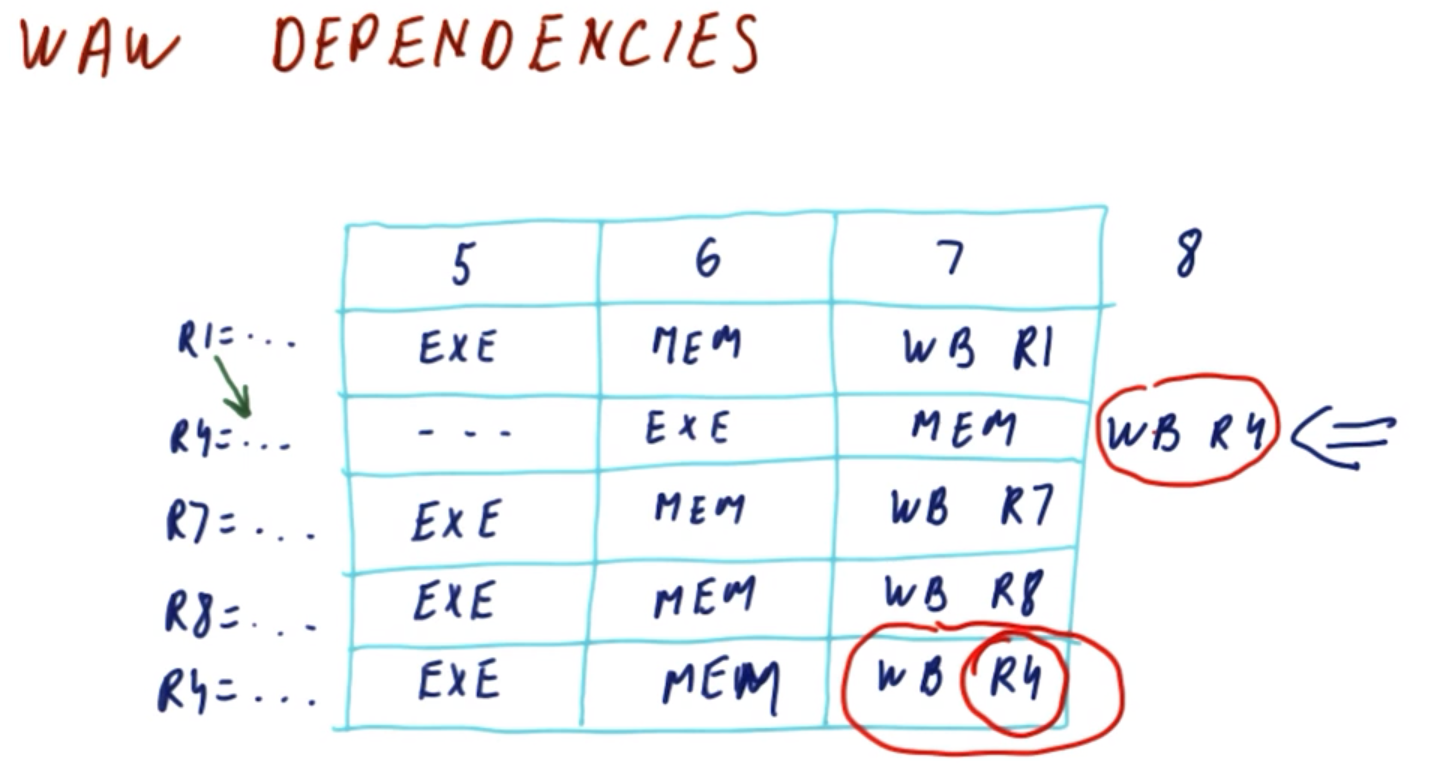 WAW DEPENDENCIES
5 6 7 8
R1=... EXE MEM WB R1
R4=... --- EXE MEM WB R4
R7=... EXE MEM WB R7
R8=... EXE MEM WB R8
R4=... EXE MEM WB R4